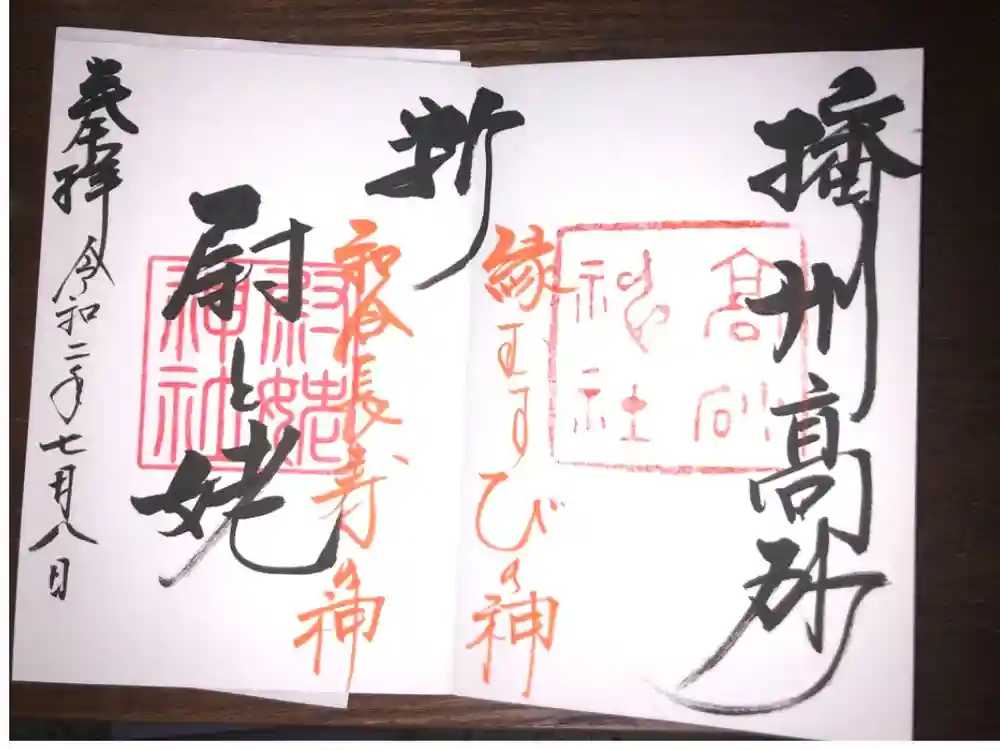 播州高砂
髙砂
神社
縁むすびの神
和合長寿の神
尉と姥
尉姥
神社
奉拝 令和二年七月八日